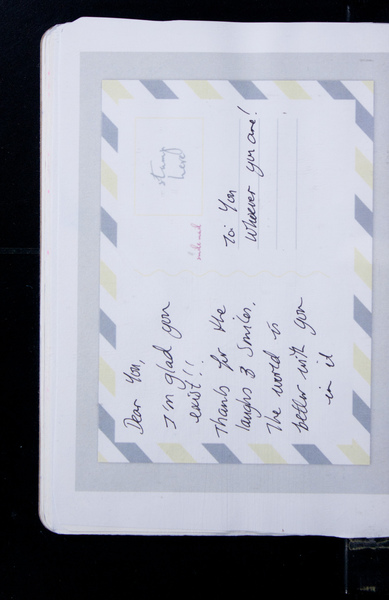 Dear You,
I'm glad you
exist!!
Thanks for the
laughs & smiles.
The world is
better with you
in it
stamp
here
To: You
Wherever you are!